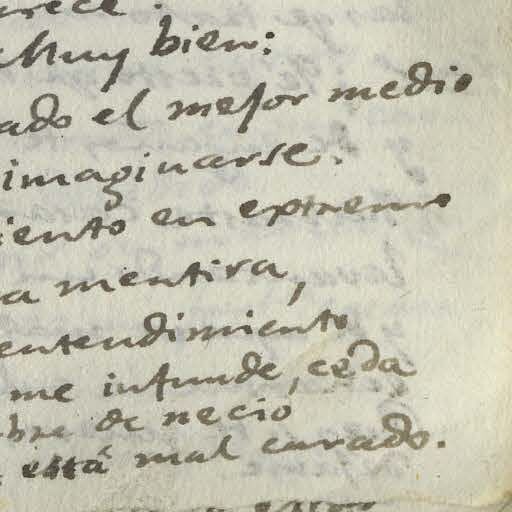 Muy bien:
ado el mejor medio
imaginarse.
iento en extremo
a mentira,
entendimiento
me infunde, ceda
bre de necio
está mal curado.